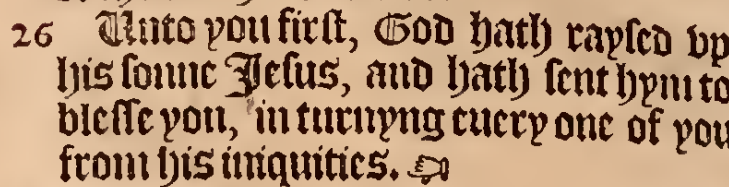 26 Unto you firſt, God hath rayſed vp
his ſonne Jeſus, and hath ſent hym to
bleſſe you, in turnyng euery one of you
from his iniquities. ☞